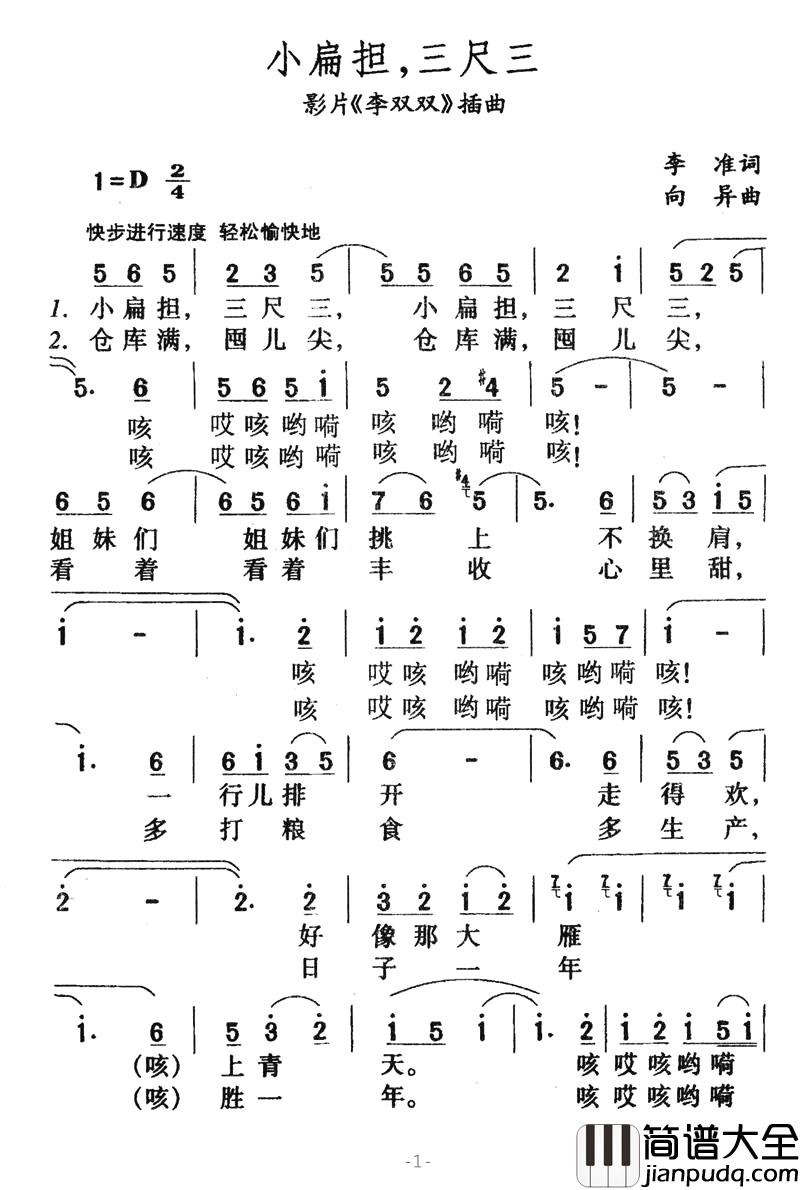 小扁担，三尺三
影片《李双双》插曲
1=D 2/4
李 准词
向 异曲
快步进行速度 轻松愉快地
5 6 5 | 2 3 5 | 5 5 6 5 | 2 i | 5 2 5
1. 小扁担，三尺三， 小扁担，三尺三，
2. 仓库满，囤儿尖， 仓库满，囤儿尖，
5. 6 | 5 6 5 i | 5 2 #4 | 5 - | 5 -
咳 哎咳哟嗬 咳哟嗬 咳！
咳 哎咳哟嗬 咳哟嗬 咳！
6 5 6 | 6 5 6 i | 7 6 #4 5 | 5. 6 | 5 3 i 5
姐妹们 姐妹们 挑上 不换肩，
看着 看着 丰收 心里甜，
i - | i. 2 | i 2 i 2 | i 5 7 | i -
咳 哎咳哟嗬 咳哟嗬 咳！
咳 哎咳哟嗬 咳哟嗬 咳！
i. 6 | 6 i 3 5 | 6 - | 6. 6 | 5 3 5
一行儿排开 走得欢，
多打粮食 多生产，
2 - | 2. 2 | 3 2 i 2 | 7 i 7 i | 7 i 7 i
好像那大雁
日子一年
i. 6 | 5 3 2 | i 5 i | i. 2 | i 2 i 5 i
（咳）上青天。 咳哎咳哟嗬
（咳）胜一年。 咳哎咳哟嗬
-1-
简谱大全
jianpudq.com